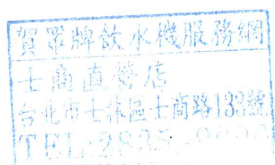 賀眾牌飲水機服務網
士商直營店
台北市士林區士商路139號
TEL:28